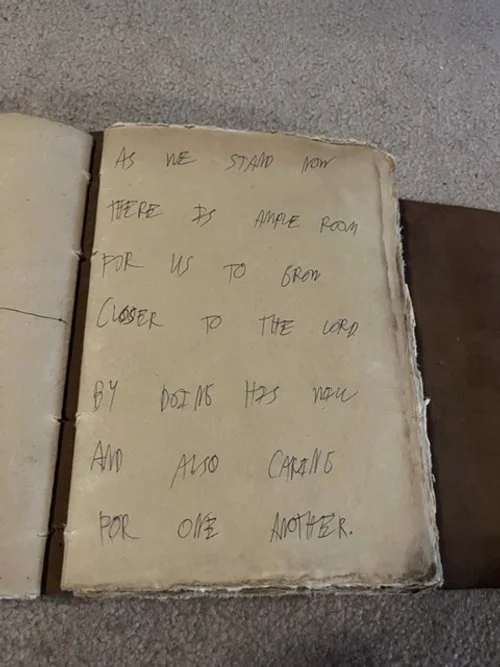 AS WE STAND NOW
THERE IS AMPLE ROOM
FOR US TO GROW
CLOSER TO THE LORD
BY DOING HIS WILL
AND ALSO CARING
FOR ONE ANOTHER.